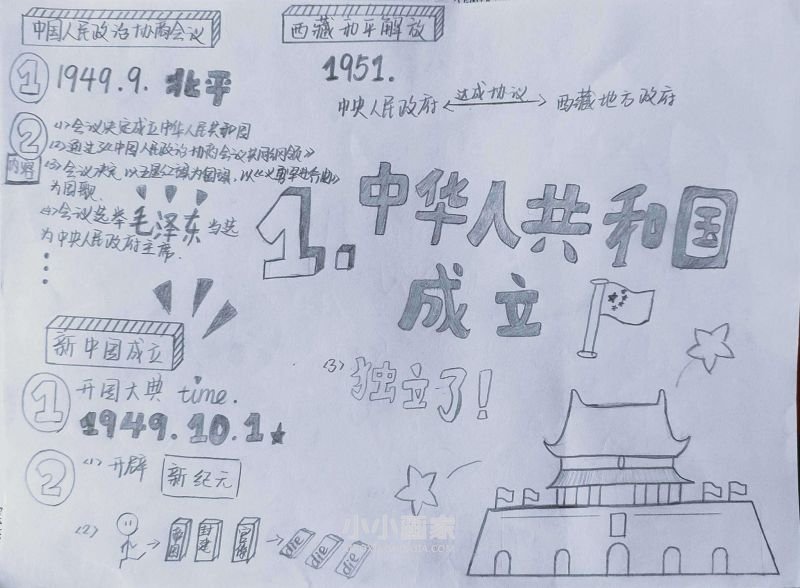 中国人民政治协商会议
① 1949.9. 北平
②
内容
(1)会议决定成立中华人民共和国
(2)通过了《中国人民政治协商会议共同纲领》
(3)会议决定以五星红旗为国旗,以《义勇军进行曲》
为国歌.
(4)会议选举毛泽东当选
为中央人民政府主席.
西藏和平解放
1951.
中央人民政府 达成协议 西藏地方政府
1. 中华人民共和国
成立
新中国成立
① 开国大典 time.
1949.10.1
② (1) 开辟 新纪元
(2) 帝国 封建 官僚 die die die
(3) 独立了!
小小画家